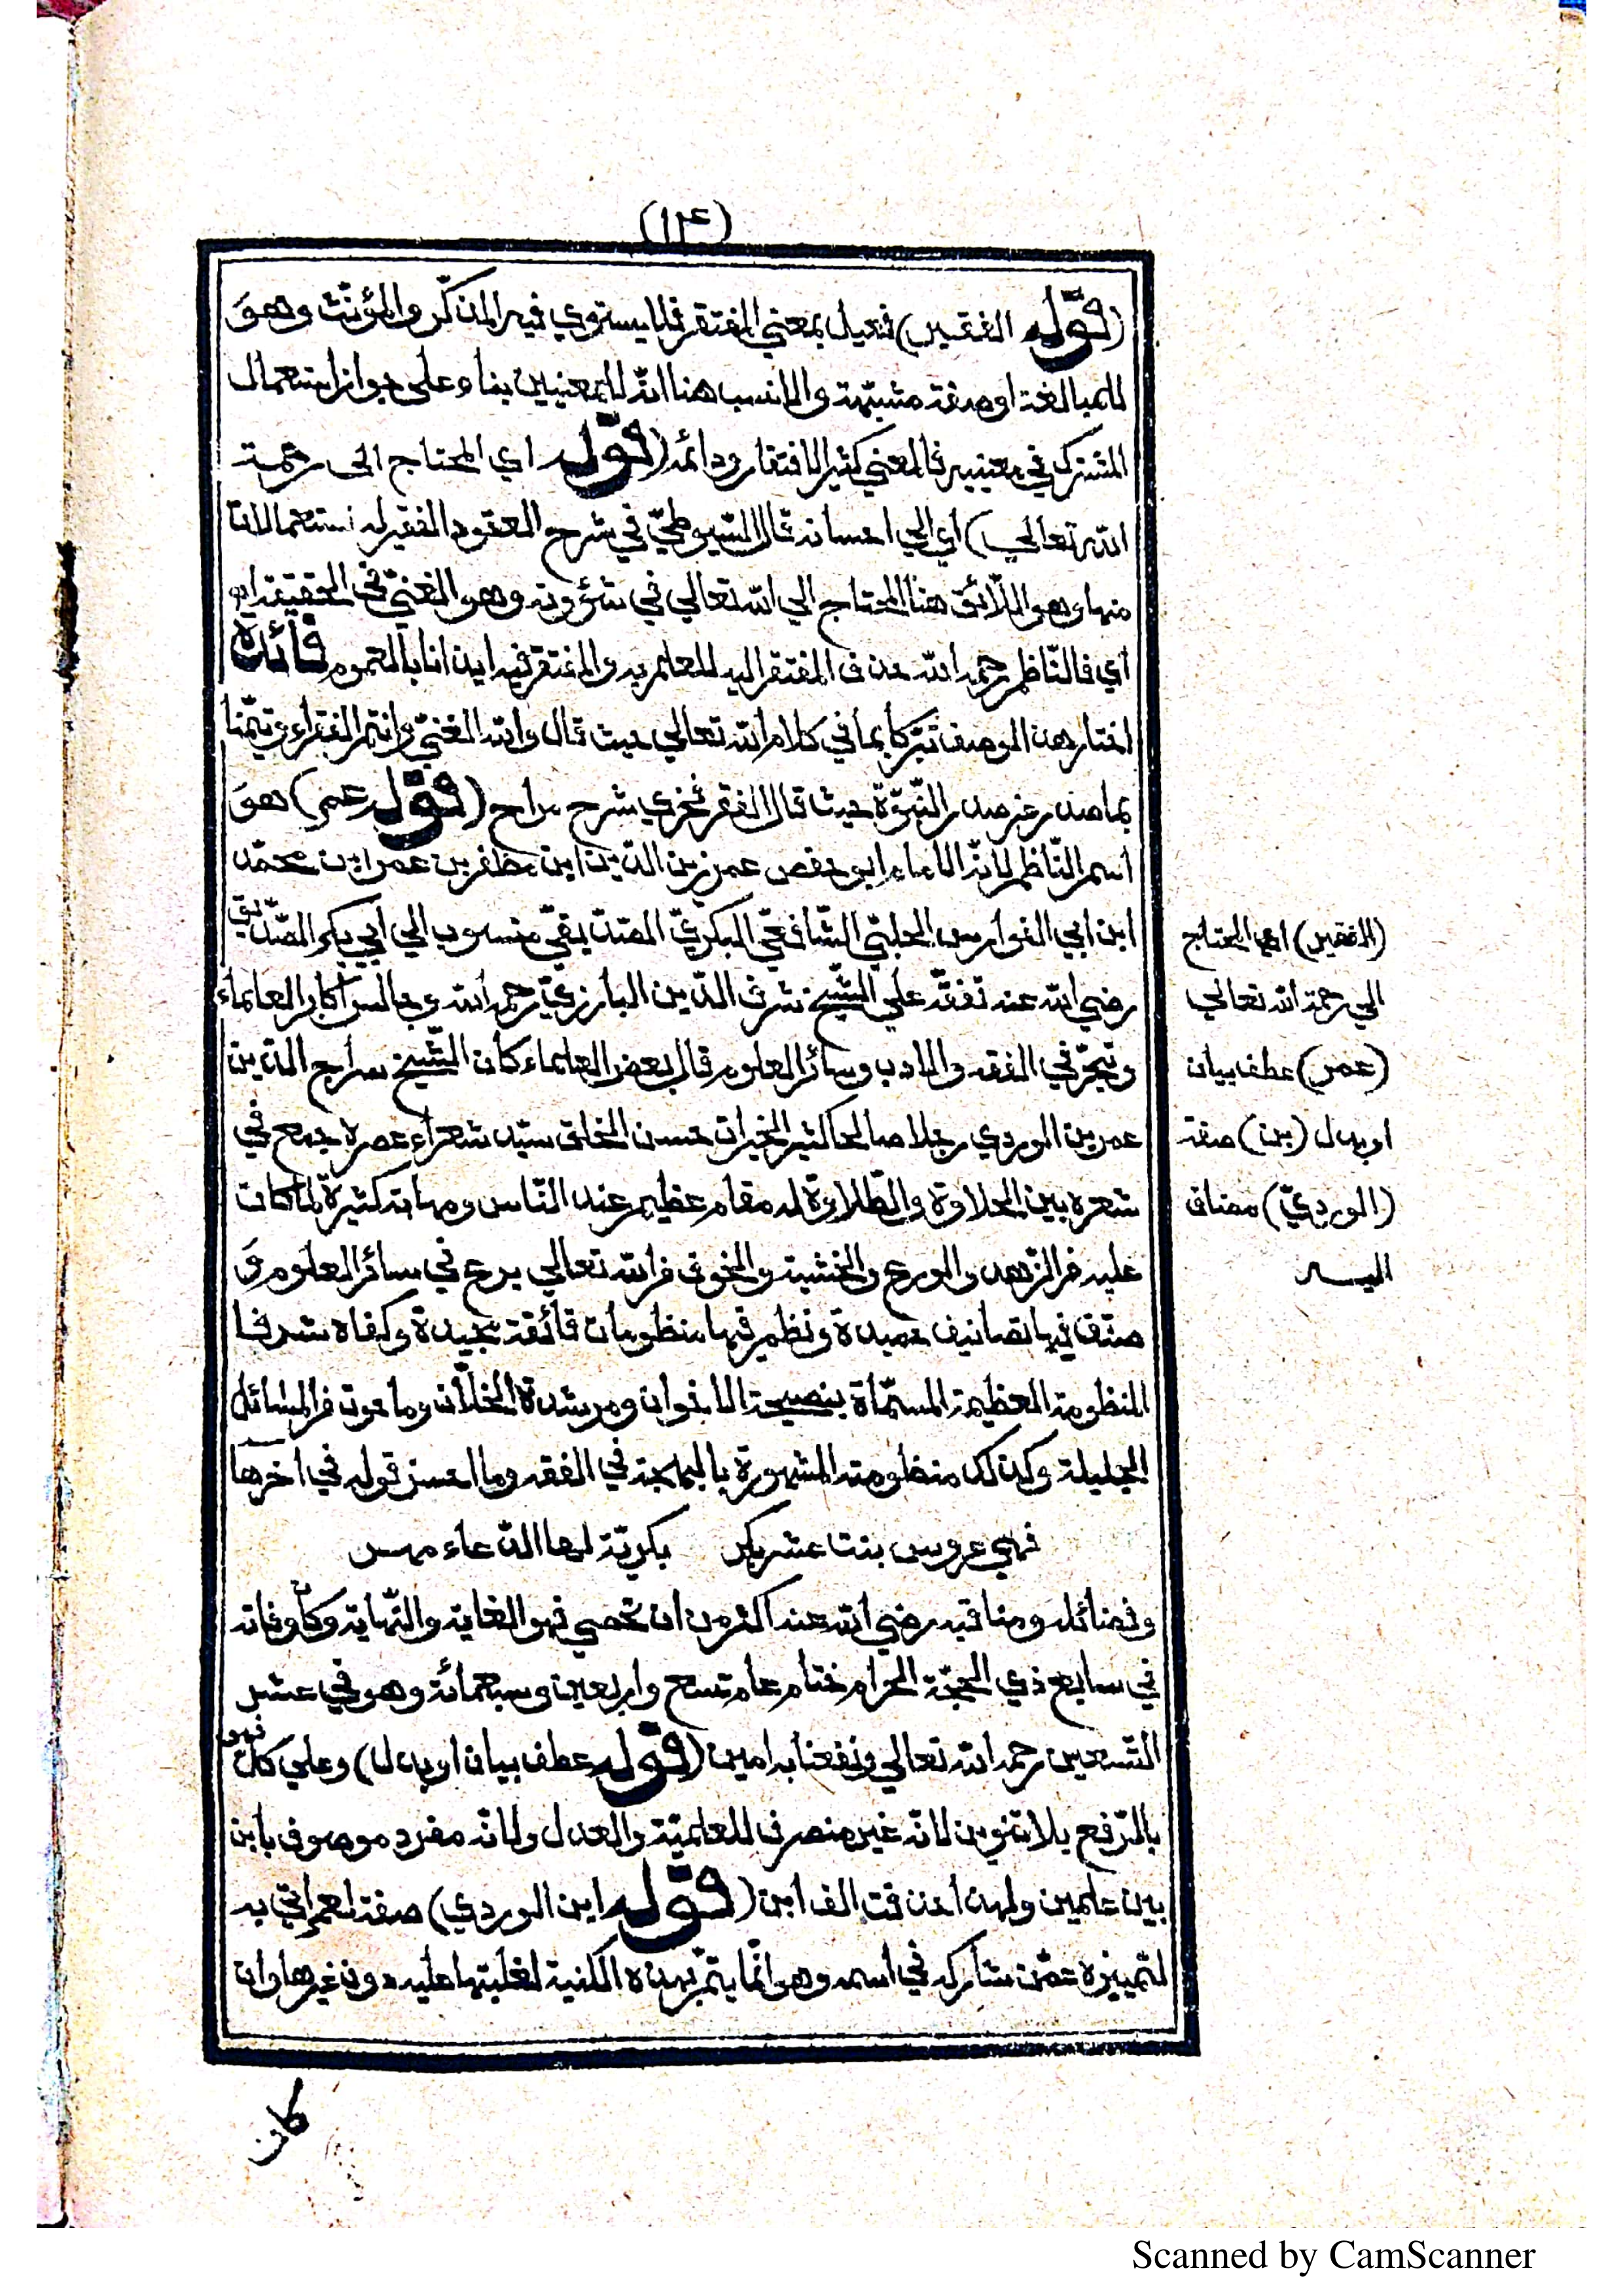 (١٢٤)
(قوله الفقير) فعيل بمعني المفتقر فلا يستوي فيه المذكّر والمؤنّث وهو
للمبالغة او صفة مشبّهة والانسب هنا انّه للمعنيين بناء علي جواز استعمال
المشترك في معنييه فالمعني كثير الافتقار ودائمه (قوله اي المحتاج الى رحمة
الله تعالي) أي الي احسانه قال السّيوطيّ في شرح العقود الفقير له استعمالات
منها وهو اللّائق هنا المحتاج الي الله تعالي في شؤونه وهو الغنيّ في الحقيقة اه
أي فالنّاظم رحمه الله حذف المفتقر اليه للعلم به والمفتقر فيه ايذانا بالعموم فائدة
اختار هذا الوصف تبرّكا بما في كلام الله تعالي حيث قال والله الغنيّ وانتم الفقراء وتيمّنا
بما صدر عن صدر النّبوّة حيث قال الفقر فخري شرح مراح (قوله عمر) هو
اسم النّاظم لانّه الامام ابو حفص عمر زين الدّين ابن مظفر بن عمر ابن محمّد
ابن ابي الفوارس الحلبّي الشّافعيّ البكريّ الصدّيقيّ منسوب الي أبي بكر الصّدّيق
رضي الله عنه تفقّه علي الشّيخ شرف الدّين البارزيّ رحمه الله وجالس أكابر العلماء
وتبحّر في الفقه والادب وسائر العلوم قال بعض العلماء كان الشّيخ سراج الدّين
عمر بن الوردي رجلا صالحا كثير الخيرات حسن الخلق سيّد شعراء عصره جمع في
شعره بين الحلاوة والطّلاوة له مقام عظيم عند النّاس ومهابة كثيرة لما كان
عليه من الزّهد والورع والخشية والخوف من الله تعالي برع في سائر العلوم و
صنّف فيها تصانيف حميدة ونظم فيها منظومات فائقة مجيدة وكفاه شرفا
المنظومة العظيمة المسمّاة بنصيحة الاخوان ومرشدة الخلّان وما حوت من المسائل
الجليلة وكذلك منظومته المشهورة بالبهاجة في الفقه وما احسن قوله في أخرها
فهي عروس بنت عشر بكر بكريّة لها الدّعاء مهر
وفضائله ومناقبه رضي الله عنه اكثر من ان تحصي فهو الغاية والنّهاية وكان وفاته
في سابع ذي الحجّة الحرام ختام عام تسع واربعين وسبعمائة وهو في عشر
التّسعين رحمه الله تعالي ونفعنا به امين (قوله عطف بيان او بدل) وعلي كلّ فهو
بالرّفع بلا تنوين لانّه غير منصرف للعلميّة والعدل ولانّه مفرد موصوف بابن
بين علمين ولهذا حذفت الف ابن (قوله ابن الوردي) صفة لعمر أتي به
لتمييزه عمّن شاركه في أسمه وهو انّما يتمّ بهذه الكنية لغلبتها عليه دون غيرها وان
كان
(الفقير) اي المحتاج
الي رحمة الله تعالي
(عمر) عطف بيان
او بدل (بن) صفة
(الورديّ) مضاف
اليه
Scanned by CamScanner